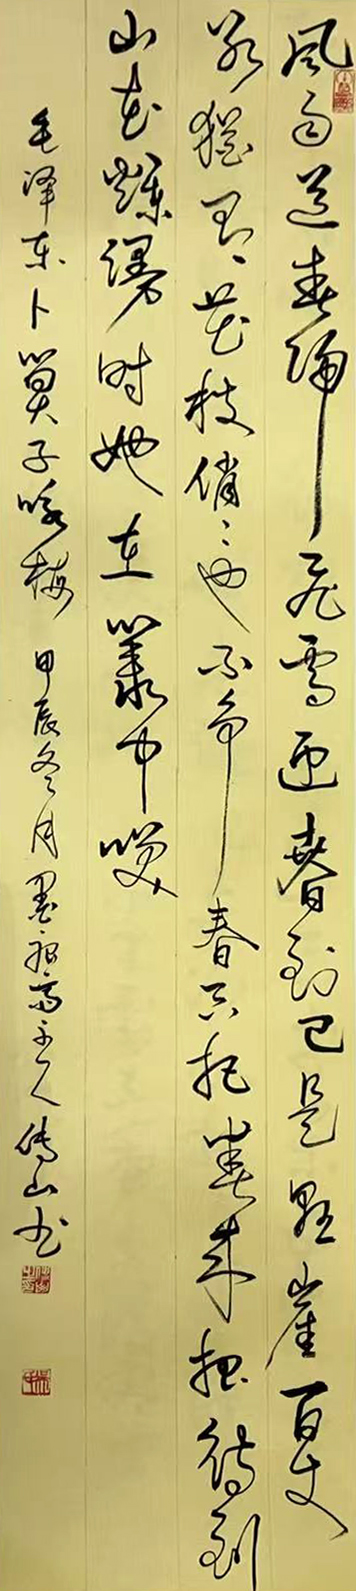 风雨送春归飞雪迎春到已是悬崖百丈
冰犹有花枝俏俏也不争春只把春来报待到
山花烂漫时她在丛中笑
毛泽东卜算子咏梅 甲辰冬月墨 斋主人 山书